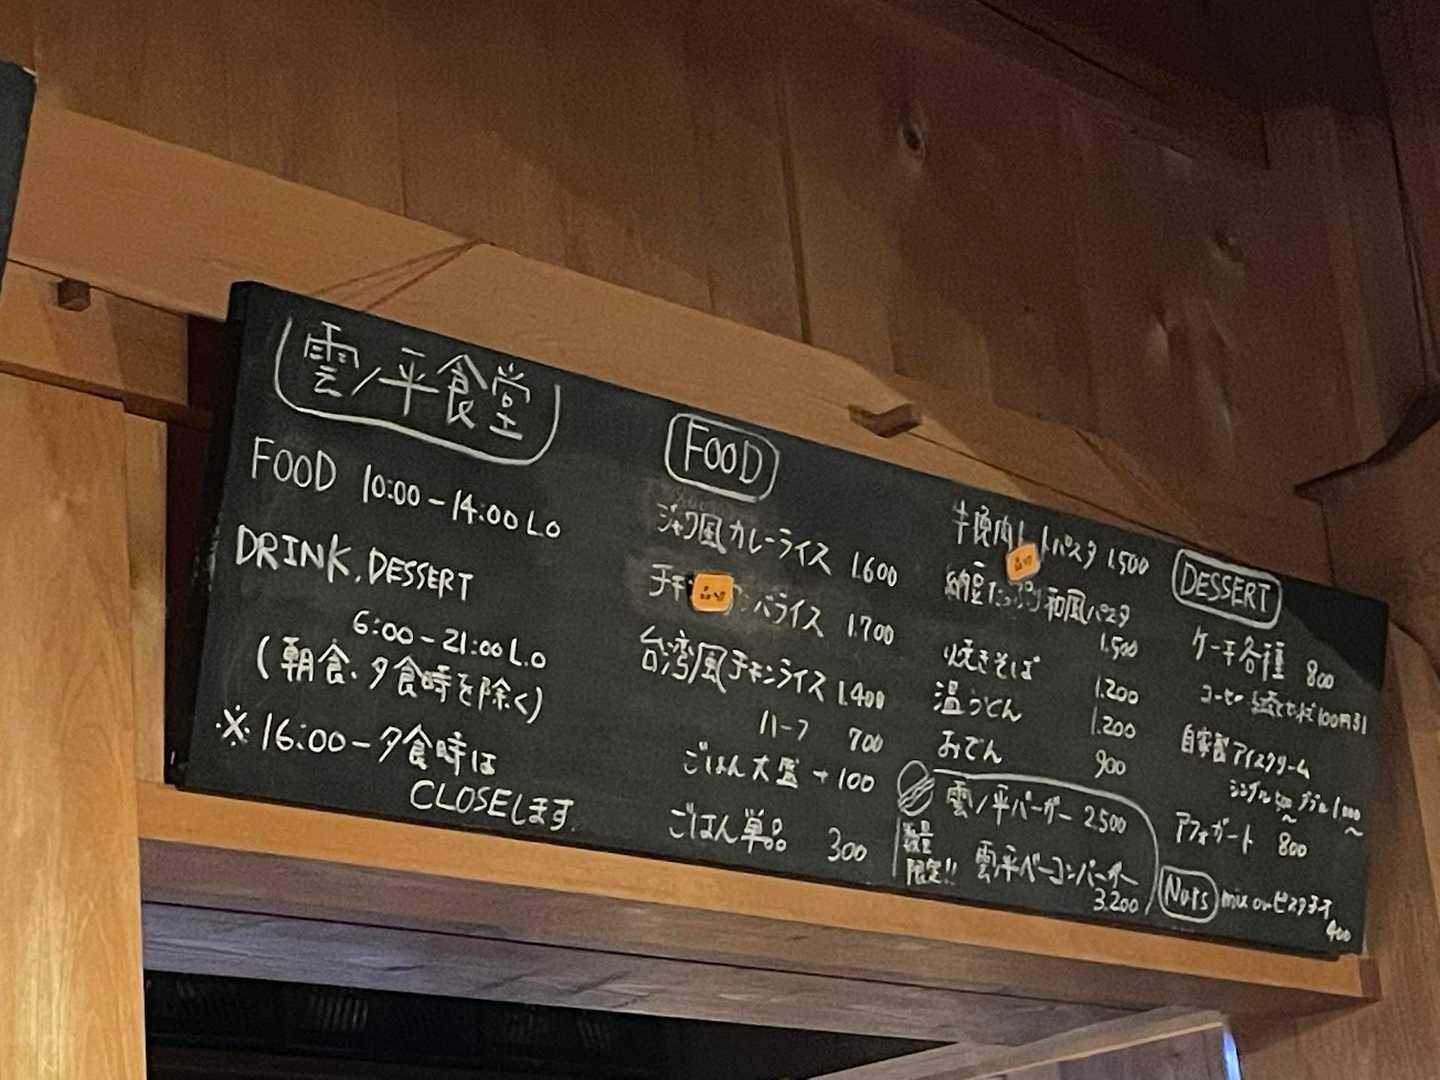 雲ノ平食堂
FOOD 10:00-14:00 L.O
DRINK, DESSERT
6:00-21:00 L.O
(朝食・夕食時を除く)
※16:00-夕食時は
CLOSEします
FOOD
ジャワ風カレーライス 1.600
チキ バライス 1.700
台湾風チキンライス 1.400
ハーフ 700
ごはん大盛 +100
ごはん単品 300
パスタ 1.500
納豆たっぷり和風パスタ
1.500
焼きそば 1.200
温うどん 1.200
おでん 900
雲ノ平バーガー 2.500
数量
限定!!
雲ノ平ベーコンバーガー
3.200
DESSERT
ケーキ各種 800
コーヒー 100円引
自家製アイスクリーム
シングル ダブル 1.000
～ ～
アフォガート 800
Nuts mix or ピスタチオ
400